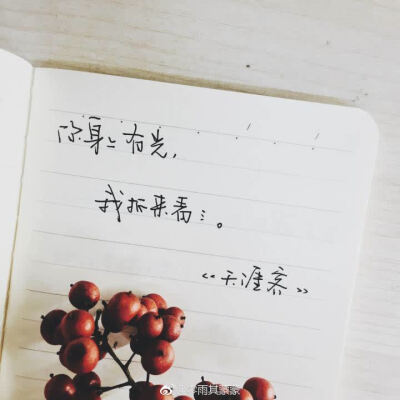 你身上有光，
我抓来看看。
《天涯客》
雨其